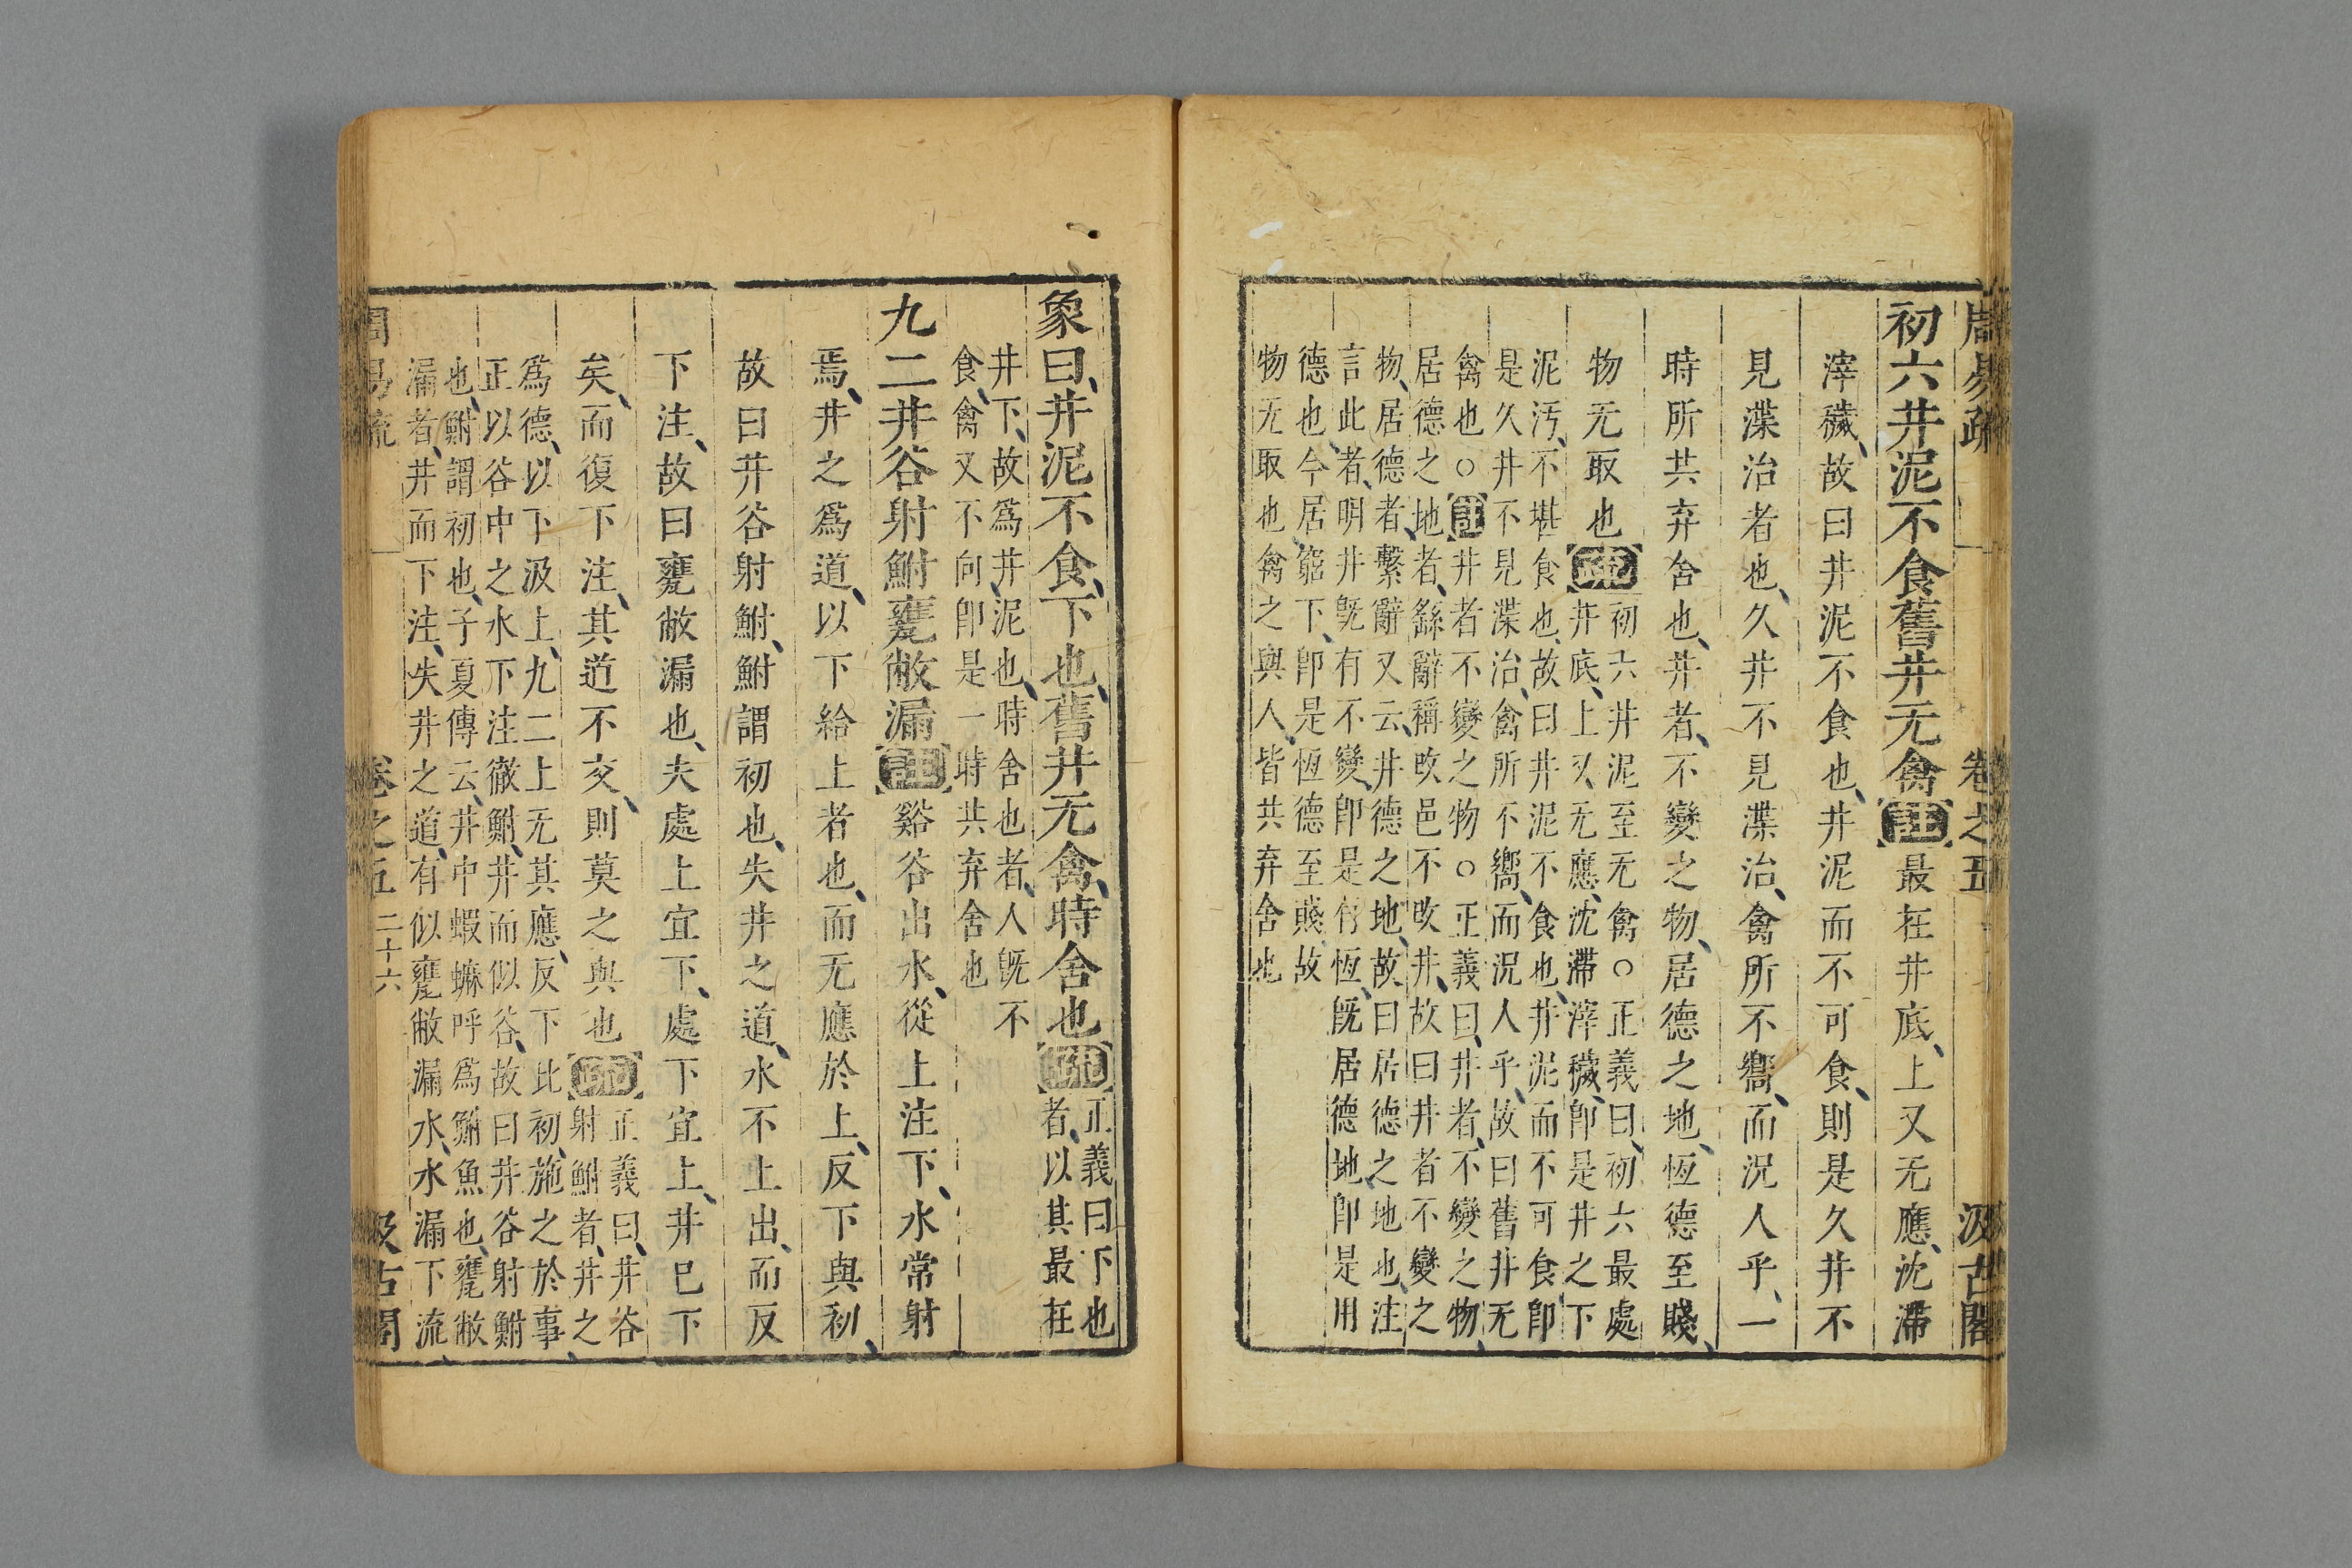 周易疏 卷之五 汲古閣
初六井泥不食舊井无禽註最在井底、上又无應、沈滯
滓穢、故曰井泥不食也、井泥而不可食、則是久井不
見渫治者也、久井不見渫治、禽所不嚮、而況人乎、一
時所共弃舍也、井者、不變之物、居德之地、恆德至賤、
物无取也疏初六井泥至无禽○正義曰、初六最處
井底、上又无應、沈滯滓穢、卽是井之下
泥汚、不堪食也、故曰井泥不食也、井泥而不可食、卽
是久井不見渫治、禽所不嚮、而況人乎、故曰舊井无
禽也○註井者不變之物○正義曰、井者、不變之物、
居德之地者、繇辭稱改邑不改井、故曰井者不變之
物、居德者、繫辭又云、井德之地、故曰居德之地也、注
言此者、明井旣有不變、卽是有恆、旣居德地、卽是用
德也、今居窮下、卽是恆德至賤、故
物无取也禽之與人、皆共弃舍也
象曰、井泥不食、下也、舊井无禽、時舍也疏正義曰下也
者、以其最在
井下、故爲井、泥也、時舍也者、人旣不
食、禽又不向卽是一時共弃舍也
九二井谷射鮒甕敝漏註谿谷出水、從上注下、水常射
焉、井之爲道、以下給上者也、而无應於上、反下與初、
故曰井谷射鮒、鮒謂初也、失井之道、水不上出、而反
下注、故曰甕敝漏也、夫處上宜下、處下宜上、井已下
矣、而復下注、其道不交、則莫之與也疏正義曰、井谷
射鮒者、井之
爲德、以下汲上、九二上无其應、反下比初、施之於事、
正以谷中之水下注徹鮒、井而似谷、故曰井谷射鮒
也、鮒謂初也、子夏傳云、井中蝦蟆呼爲鮒魚也、甕敝
漏者、井而下注、失井之道、有似甕敝漏水、水漏下流、
周易疏 卷之五 二十六 汲古閣